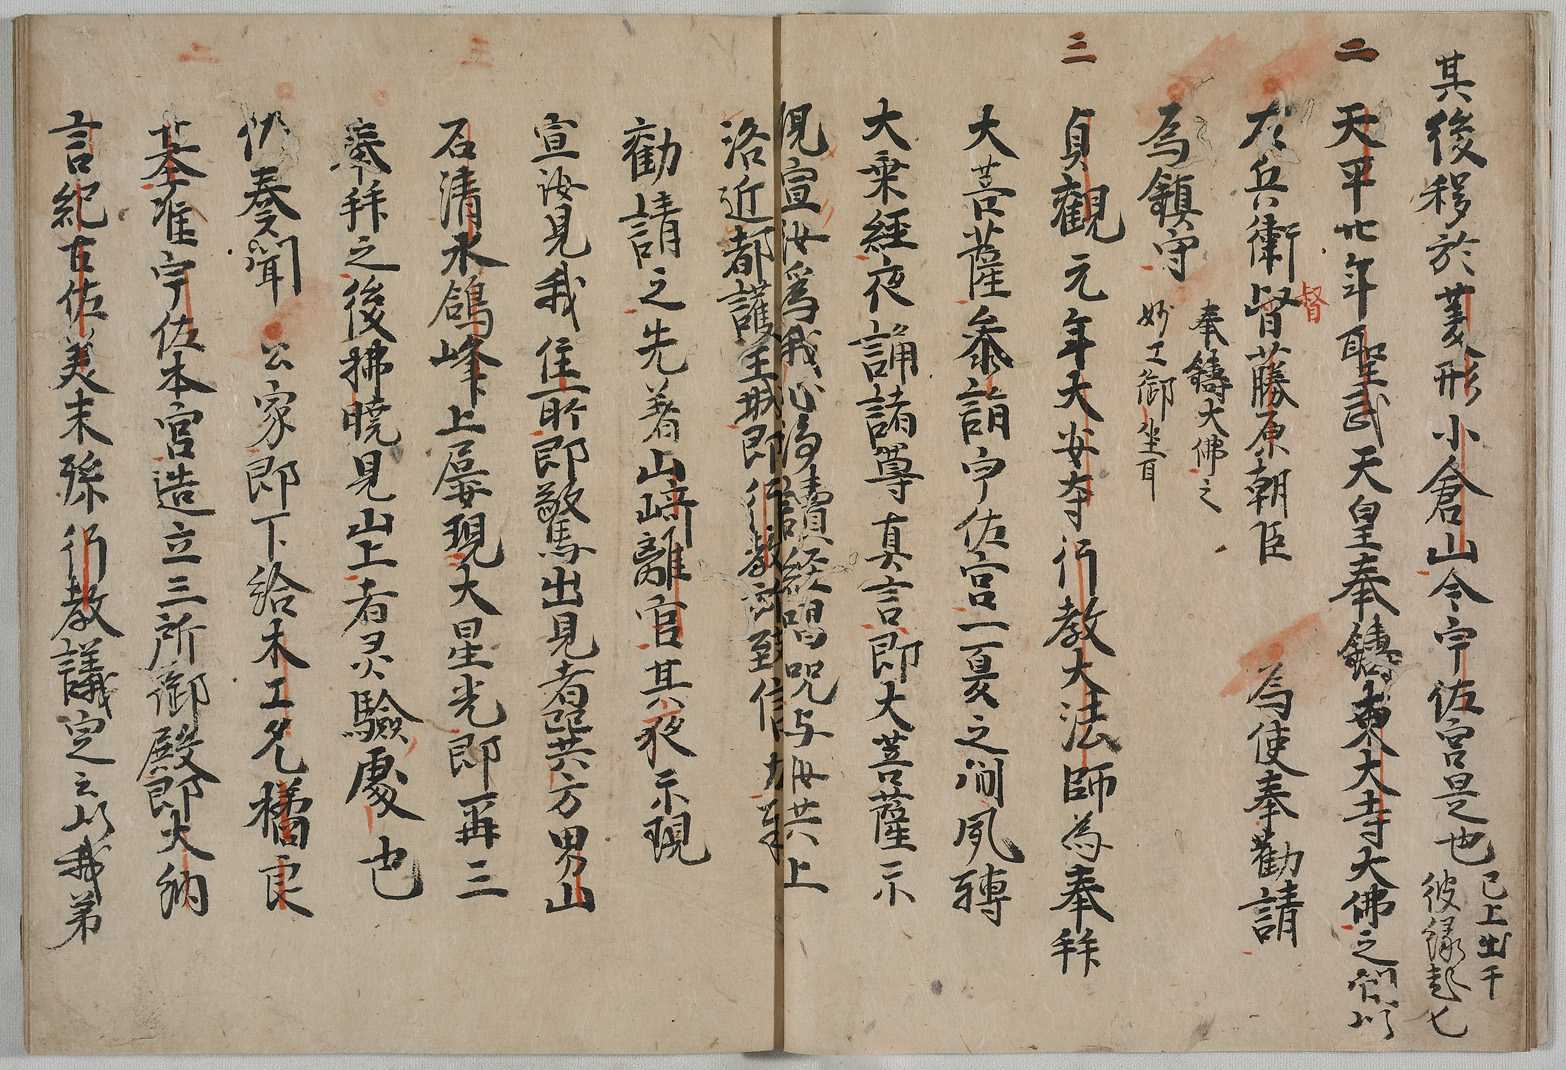 其後移於菱形小倉山今宇佐宮是也
已上出于
彼縁起也
二
天平廿年聖武天皇奉鑄東大寺大佛之間以
左兵衛督藤原朝臣
督
為使奉勸請
為鎮守
奉鑄大佛之
妙工御坐耳
三
貞觀元年大安寺行教大法師為奉拜
大菩薩參詣宇佐宮一夏之間夙轉
大乗經夜誦諸尊真言即大菩薩示
現宣汝爲我心得讀経唱呪与汝共上
洛近都護王城即行教
勸請之先着山﨑離宮其夜示現
宣汝見我住所即敬驚出見者巽方男山
石清水鴿峰上屡現大星光即再三
奉拜之後拂暁見山上者灵驗處也
三
仍奏聞公家即下給木工允橘良
二
基准宇佐本宮造立三所御殿即大納
言紀古佐美末孫行教議定云以我弟